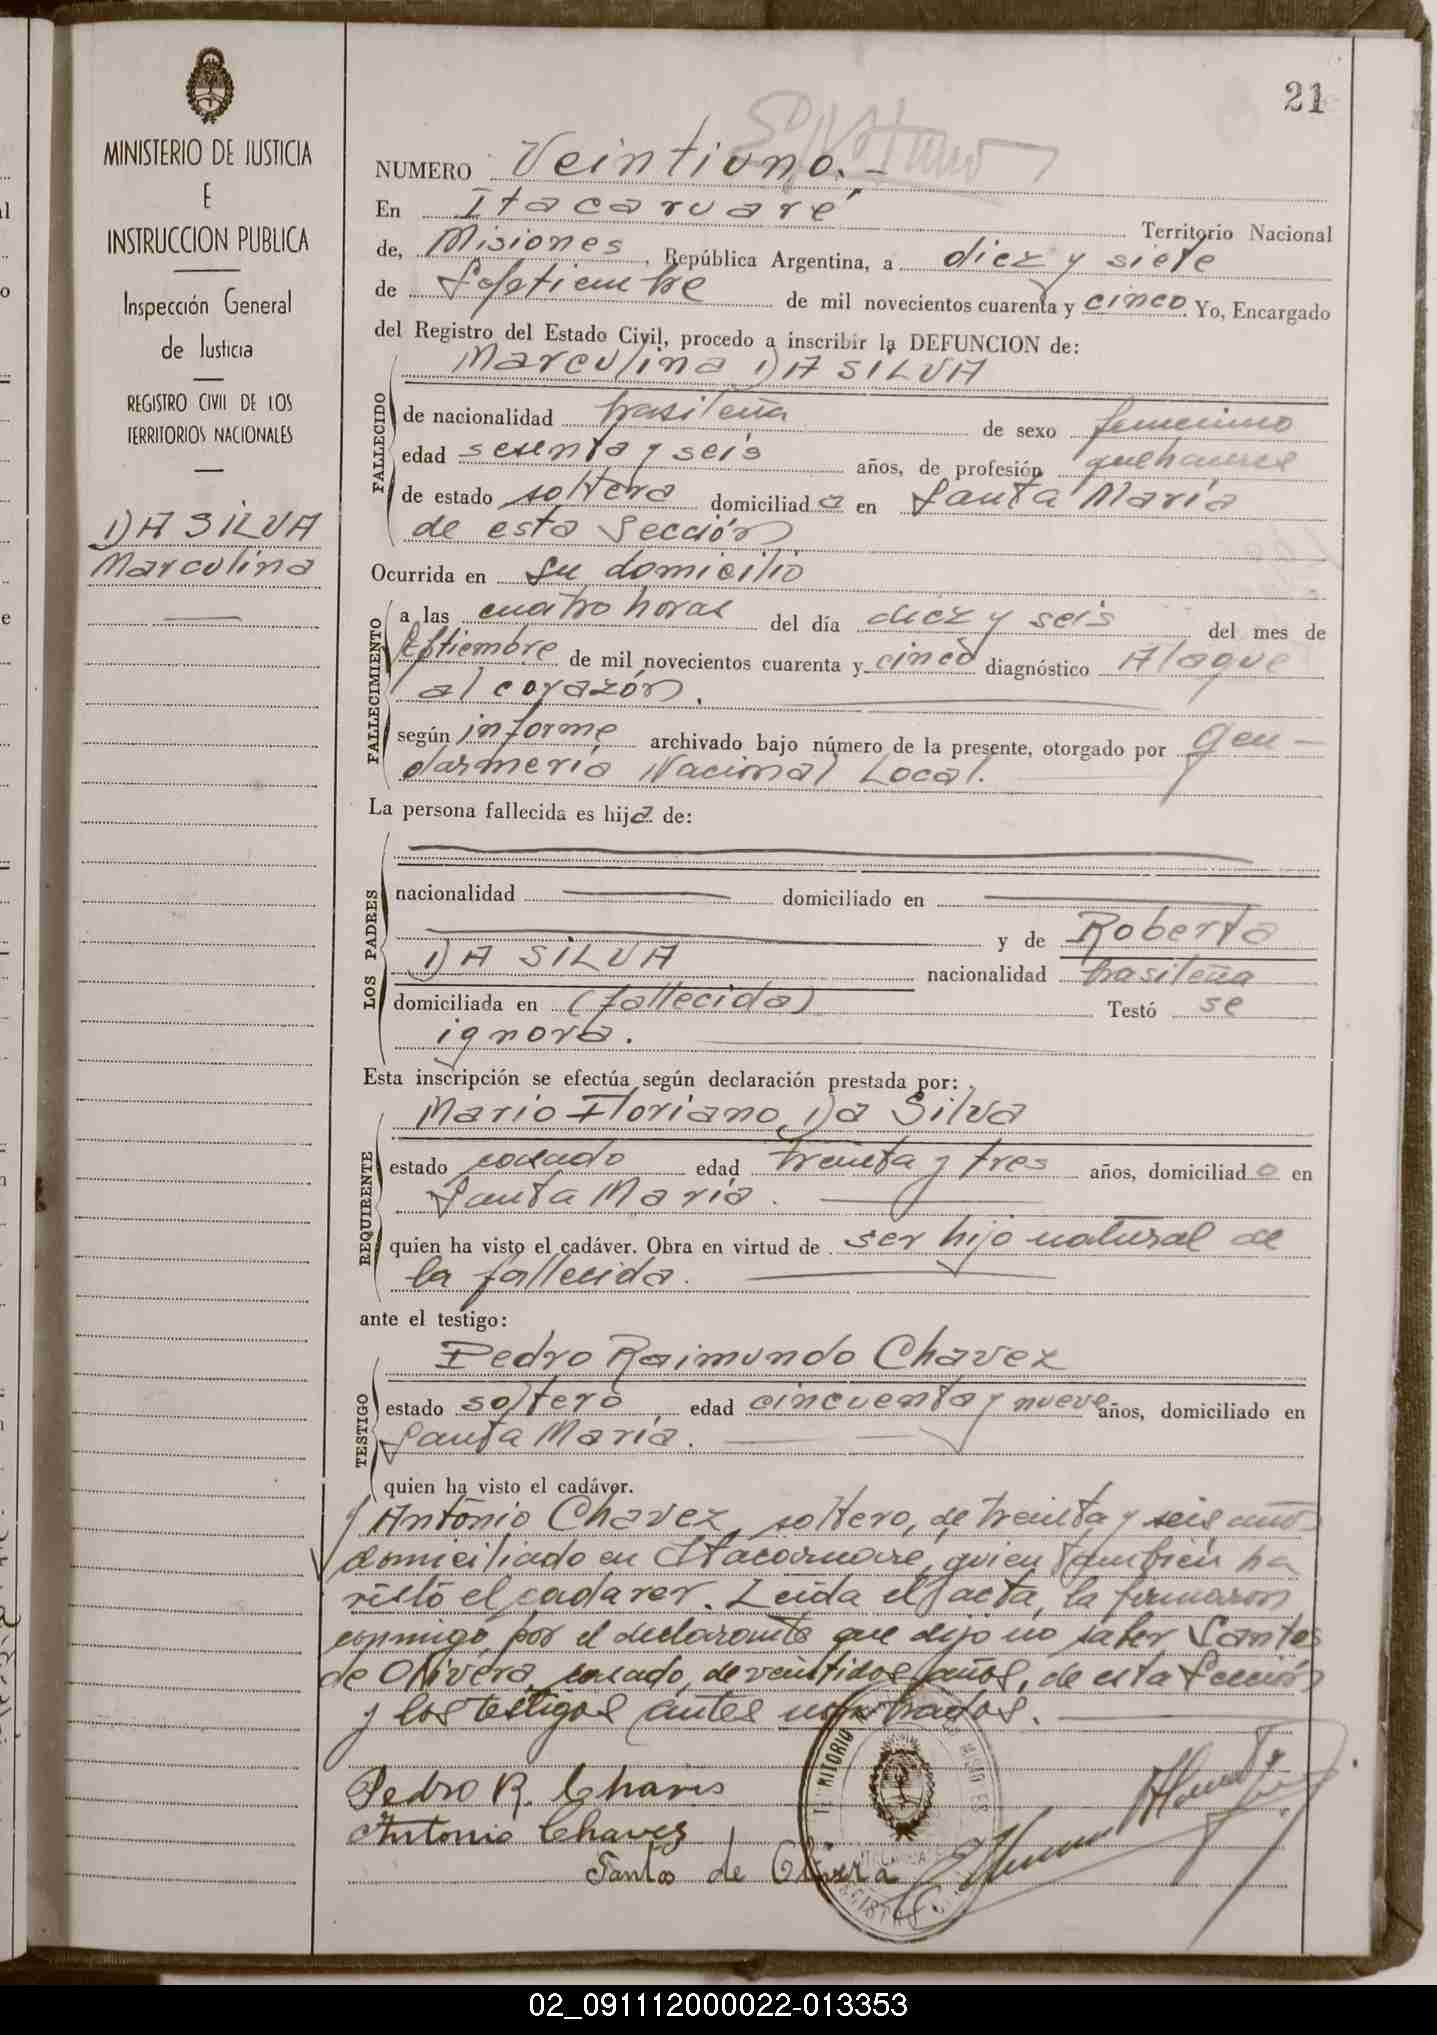 21
MINISTERIO DE JUSTICIA
E
INSTRUCCION PUBLICA
Inspección General
de Justicia
REGISTRO CIVIL DE LOS
TERRITORIOS NACIONALES
DA SILVA
Marculina
NUMERO Veintiuno.-
En Itacaruaré Territorio Nacional
de, Misiones, República Argentina, a diez y siete
de Septiembre de mil novecientos cuarenta y cinco. Yo, Encargado
del Registro del Estado Civil, procedo a inscribir la DEFUNCION de:
Marculina DA SILVA
FALLECIDO
de nacionalidad brasileña de sexo femenino
edad sesenta y seis años, de profesión quehaceres
de estado soltera domiciliada en Santa María
de esta Sección
Ocurrida en su domicilio
FALLECIMIENTO
a las cuatro horas del día diez y seis del mes de
Septiembre de mil novecientos cuarenta y cinco diagnóstico Ataque
al corazón.
según informe archivado bajo número de la presente, otorgado por Gen-
darmería Nacional Local.
La persona fallecida es hija de:
LOS PADRES
nacionalidad domiciliado en
y de Roberta
DA SILVA nacionalidad brasileña
domiciliada en (fallecida) Testó se
ignora.
Esta inscripción se efectúa según declaración prestada por:
Mario Floriano Da Silva
REQUIRENTE
estado casado edad treinta y tres años, domiciliado en
Santa María.
quien ha visto el cadáver. Obra en virtud de ser hijo natural de
la fallecida.
ante el testigo:
Pedro Raimundo Chavez
TESTIGO
estado soltero, edad cincuenta y nueve años, domiciliado en
Santa María.
quien ha visto el cadáver.
y Antonio Chavez, soltero, de treinta y seis años
domiciliado en Itacaruare, quien también ha
visto el cadaver. Leída el acta, la firmaron
conmigo, por el declarante que dijo no saber Santos
de Olivera, casado, de veintidos años, de esta Sección
y los testigos antes nombrados.
Pedro R. Chaves
Antonio Chavez
Santos de Olivera
02_091112000022-013353